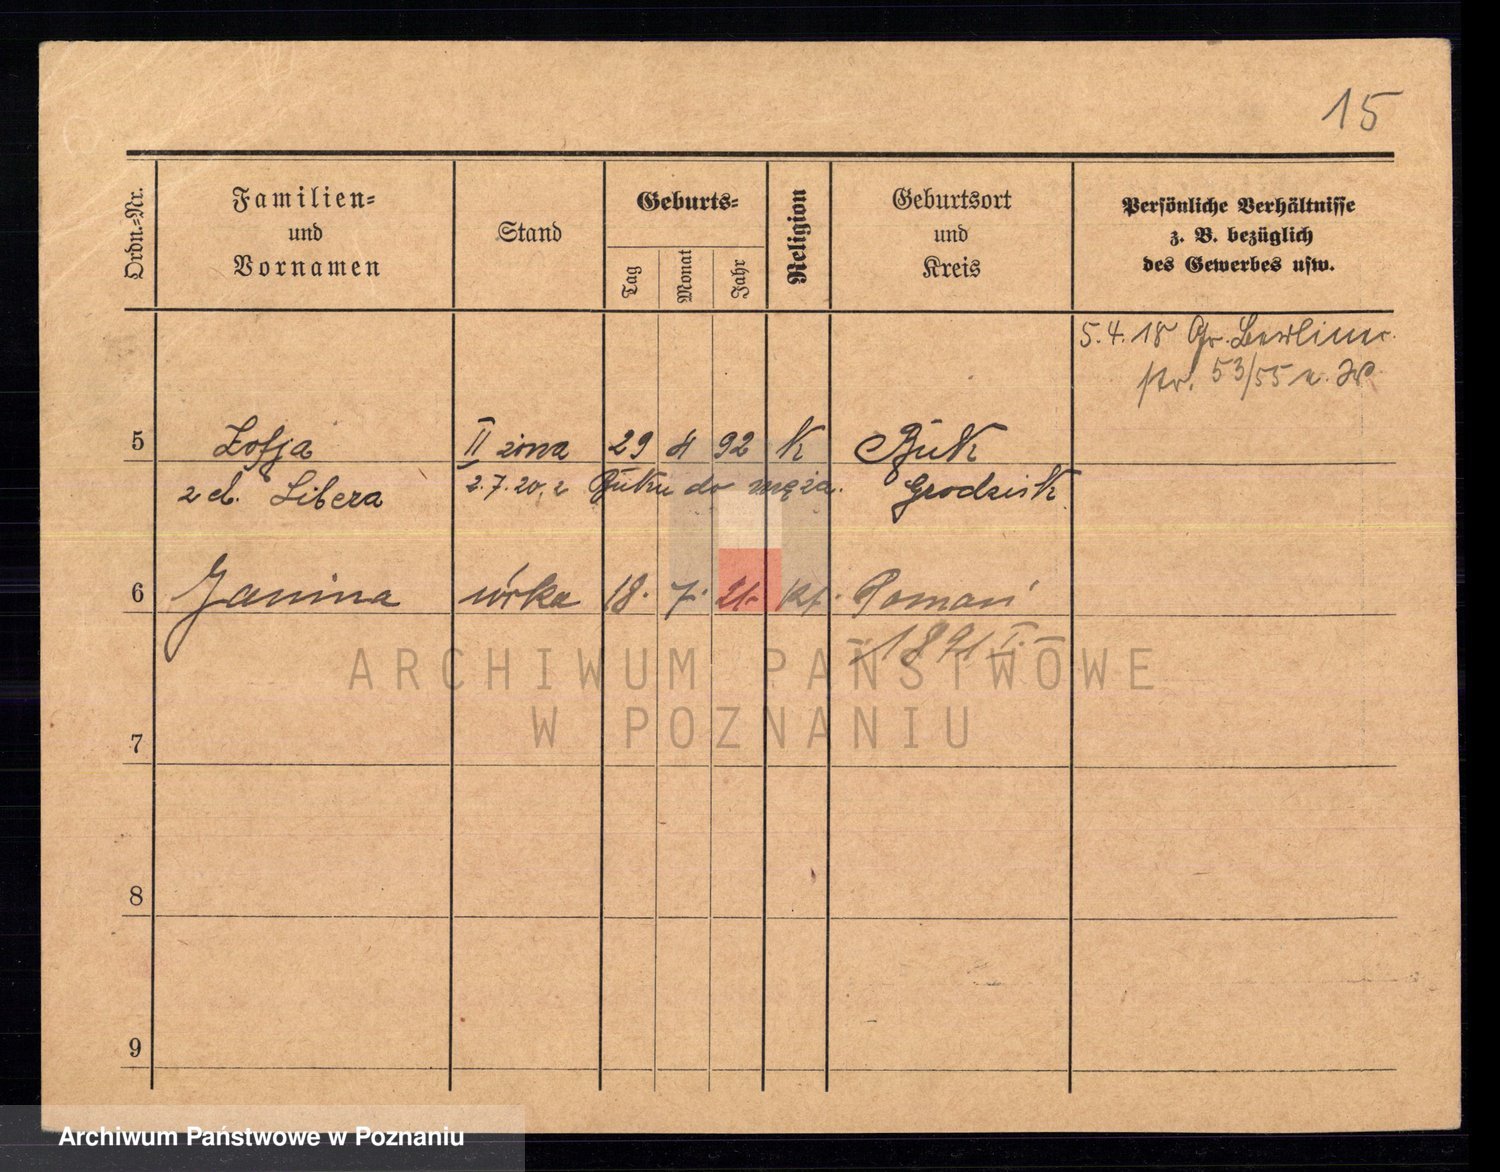 15
Ordn.-Nr.
Familien-
und
Vornamen
Stand
Geburts-
Tag
Monat
Jahr
Religion
Geburtsort
und
Kreis
Persönliche Verhältnisse
z. B. bezüglich
des Gewerbes usw.
5.4.18 Gr. Berliner
str. 53/55 u.
5 Zofja II żona 29 4 92 K Buk
z d. Libera 2.7.20. z Buku do męża. Grodzisk
6 Janina córka 18. 7. 21. kt. Poznań
1891 I.
ARCHIWUM PAŃSTWOWE
W POZNANIU
7
8
9
Archiwum Państwowe w Poznaniu